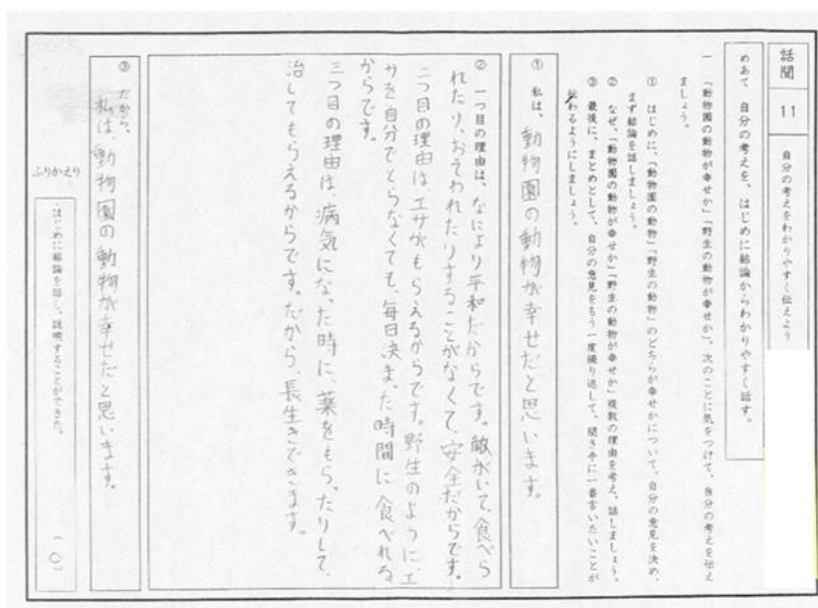 話聞
11
自分の考えをわかりやすく伝えよう
めあて 自分の考えを、はじめに結論からわかりやすく話す。
一 「動物園の動物が幸せか」「野生の動物が幸せか」、次のことに気をつけて、自分の考えを伝え
ましょう。
① はじめに、「動物園の動物」「野生の動物」のどちらが幸せかについて、自分の意見を決め、
まず結論を話しましょう。
② なぜ、「動物園の動物が幸せか」「野生の動物が幸せか」複数の理由を考え、話しましょう。
③ 最後に、まとめとして、自分の意見をもう一度繰り返して、聞き手に一番言いたいことが
伝わるようにしましょう。
① 私は、動物園の動物が幸せだと思います。
② 一つ目の理由は、なにより平和だからです。敵がいて、食べら
れたり、おそわれたりすることがなくて、安全だからです。
二つ目の理由は、エサがもらえるからです。野生のように、エ
サを自分でとらなくても、毎日決まった時間に食べれる
からです。
三つ目の理由は、病気になった時に、薬をもらったりして、
治してもらえるからです。だから、長生きできます。
③ だから、
私は、動物園の動物が幸せだと思います。
ふりかえり
・はじめに結論を話し、説明することができた。
(○)